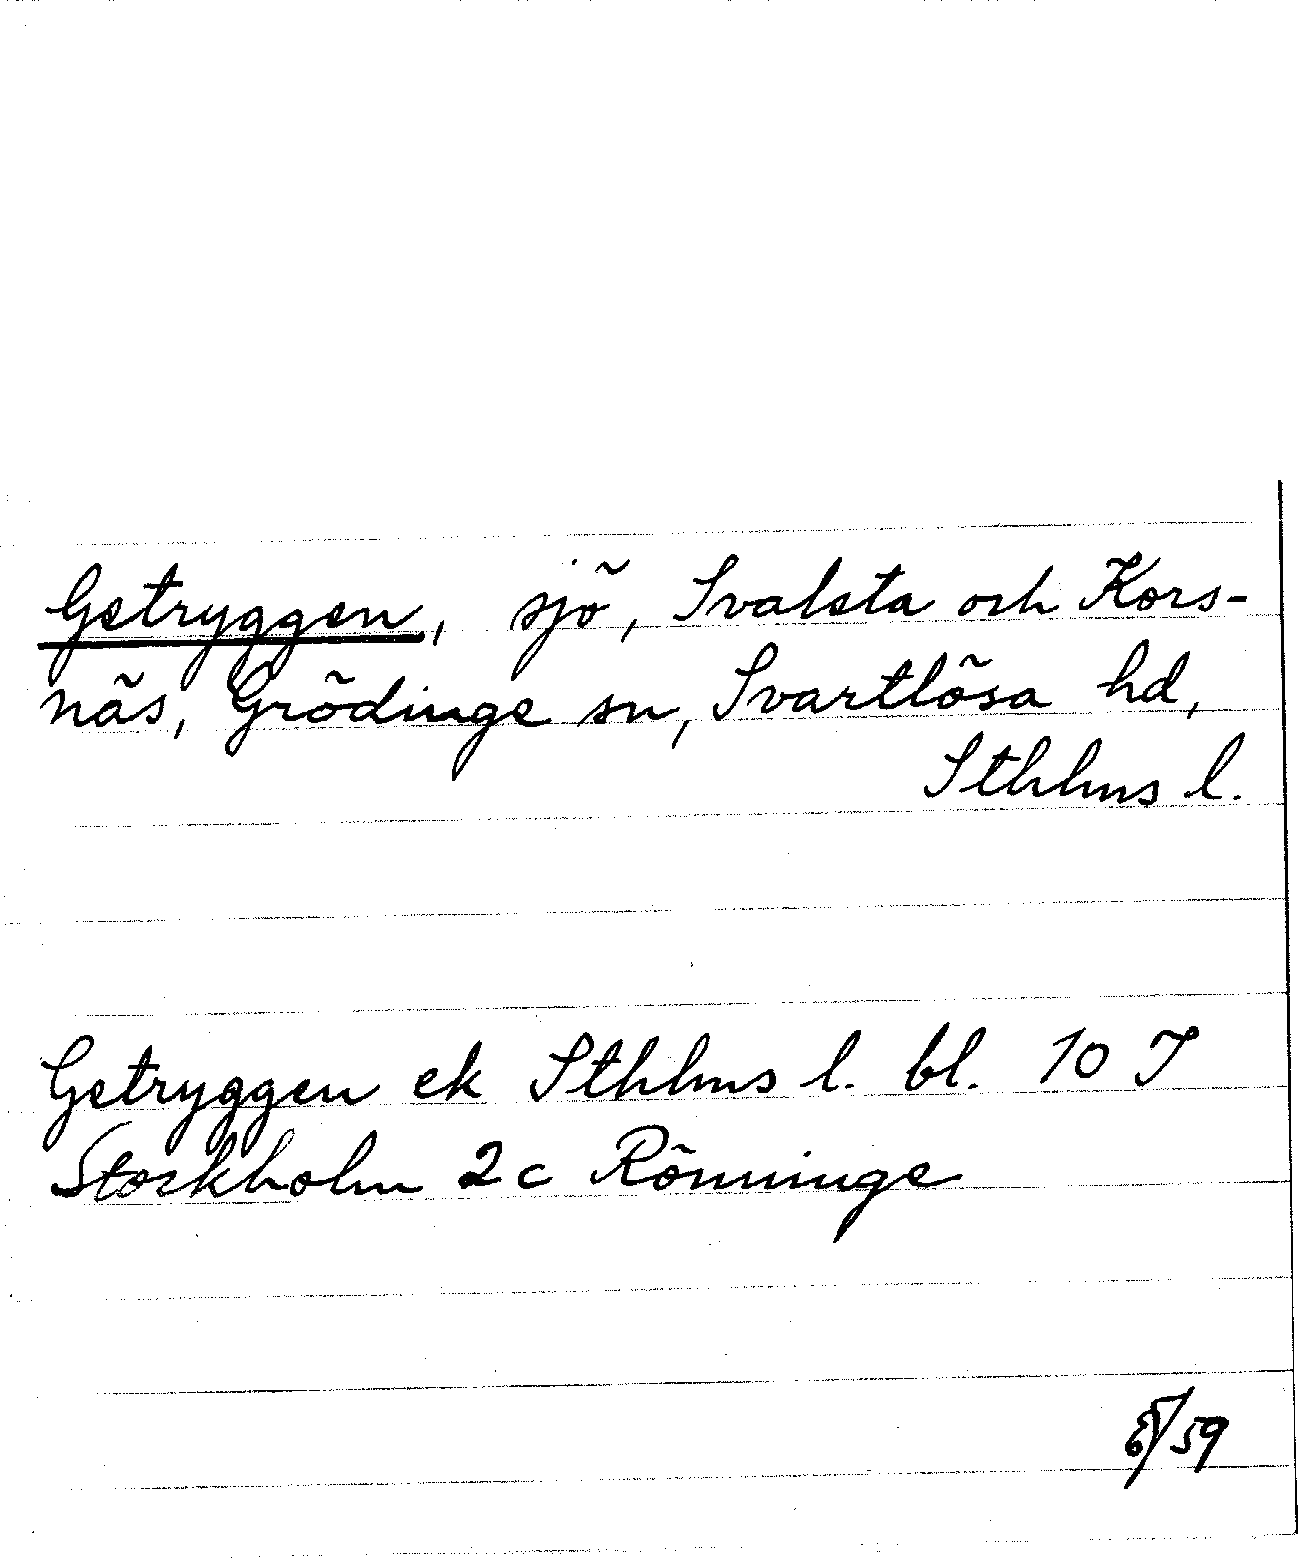 Getryggen, sjö, Svalsta och Kors-
näs, Grödinge sn, Svartlösa hd,
Sthlms l.
Getryggen ek Sthlms l. bl. 10 I
Stockholm 2c Rönninge
/59